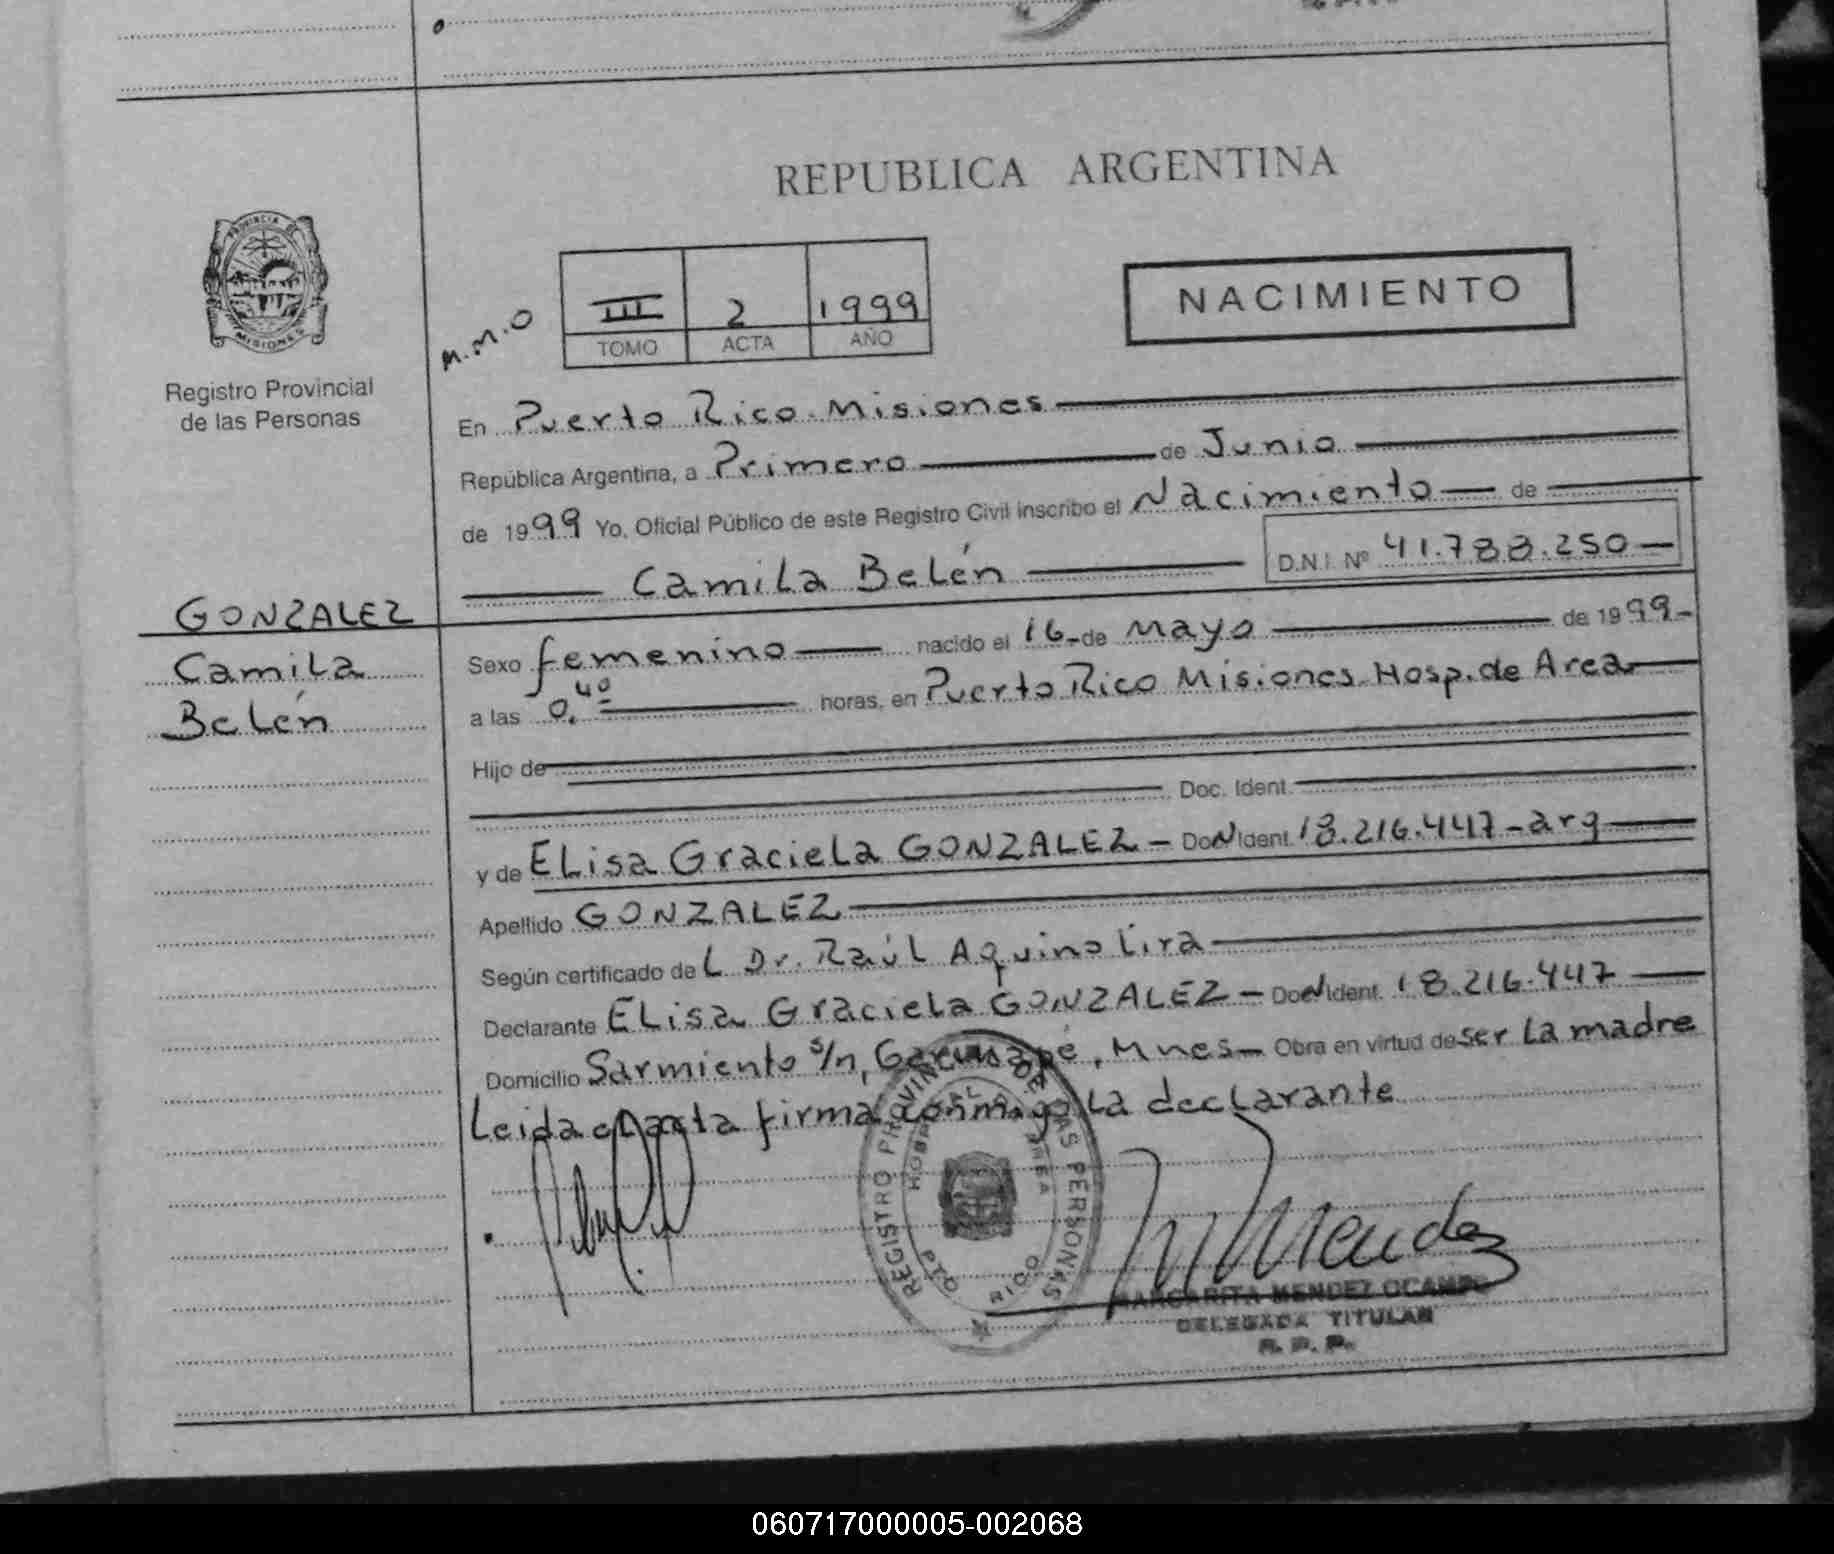 REPUBLICA ARGENTINA
PROVINCIA DE
MISIONES
Registro Provincial
de las Personas
M.M.O
III 2 1999
TOMO ACTA AÑO
NACIMIENTO
En Puerto Rico. Misiones
República Argentina, a Primero de Junio
de 1999 Yo, Oficial Público de este Registro Civil inscribo el Nacimiento de
Camila Belén D.N.I. Nº 41.788.250
GONZALEZ
Camila
Belén
Sexo femenino nacido el 16 de Mayo de 1999
a las 0.40 horas, en Puerto Rico Misiones Hosp. de Area
Hijo de
Doc. Ident.
y de Elisa Graciela GONZALEZ - Ident. 18.216.447 - arg
Apellido GONZALEZ
Según certificado del Dr. Raúl Aquino Lira
Declarante Elisa Graciela GONZALEZ - Ident. 18.216.447
Domicilio Sarmiento s/n, Garuhapé, Mnes - Obra en virtud de ser la madre
Leida el acta firma conmigo la declarante
REGISTRO PROVINCIAL DE LAS PERSONAS
HOSPITAL AREA
PTO RICO
M Mendez
MARGARITA MENDEZ OCAMPO
DELEGADA TITULAR
R. P. P.
060717000005-002068